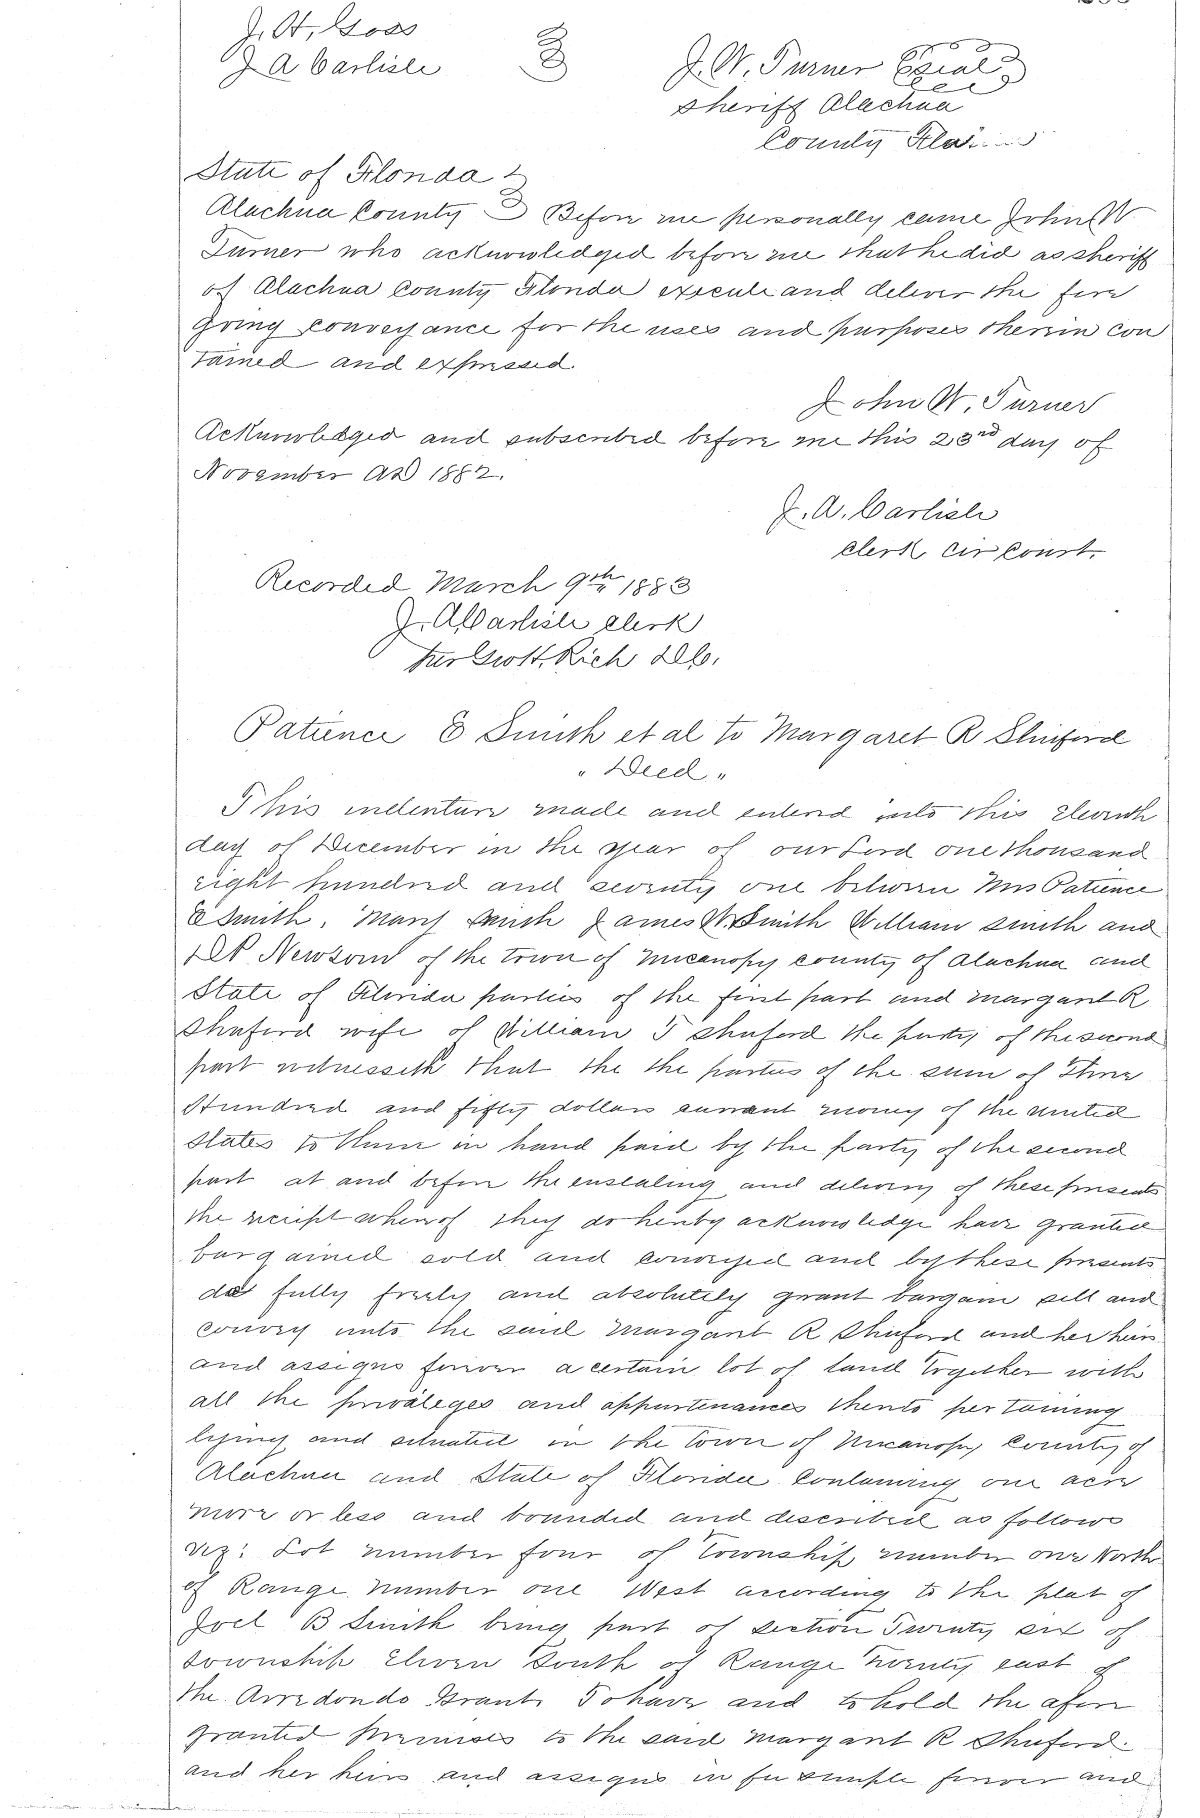 J. H. Goss
J A Carlisle
J. W. Turner Seal
Sheriff Alachua
County Fla
State of Florida
Alachua County Before me personally came John W
Turner who acknowledged before me that he did as sheriff
of Alachua County Florida execute and deliver the fore
going conveyance for the uses and purposes therein con
tained and expressed.
John W. Turner
Acknowledged and subscribed before me this 23rd day of
November AD 1882.
J. A. Carlisle
Clerk Cir Court.
Recorded March 9th 1883
J. A Carlisle Clerk
per Scott. Rich D.C.
Patience E Smith et al to Margaret R Shuford
" Deed "
This indenture made and entered into this Eleventh
day of December in the year of our Lord one thousand
eight hundred and seventy one between Mrs Patience
E Smith, Mary Smith James W. Smith William Smith and
Newsom of the town of Micanopy county of Alachua and
State of Florida parties of the first part and Margaret R
Shuford wife of William T Shuford the party of the second
part witnesseth that the the parties of the sum of Three
Hundred and fifty dollars currant money of the united
States to them in hand paid by the party of the second
part at and before the ensealing and delivery of these presents
the receipt whereof they do hereby acknowledge have granted
bargained sold and conveyed and by these presents
do fully freely and absolutely grant bargain sell and
convey unto the said Margaret R Shuford and her heirs
and assigns forever a certain lot of land together with
all the privaleges and appurtenances thereto pertaining
lying and situated in the town of Micanopy County of
Alachua and State of Florida Containing one acre
more or less and bounded and described as follows
viz: Lot number four of Township number one North
of Range number one West according to the plat of
Joel B Smith being part of Section Twenty six of
township Eleven South of Range twenty east of
the Arredondo Grant. To have and to hold the afore
granted premises to the said Margaret R Shuford.
and her heirs and assigns in fee simple forever and